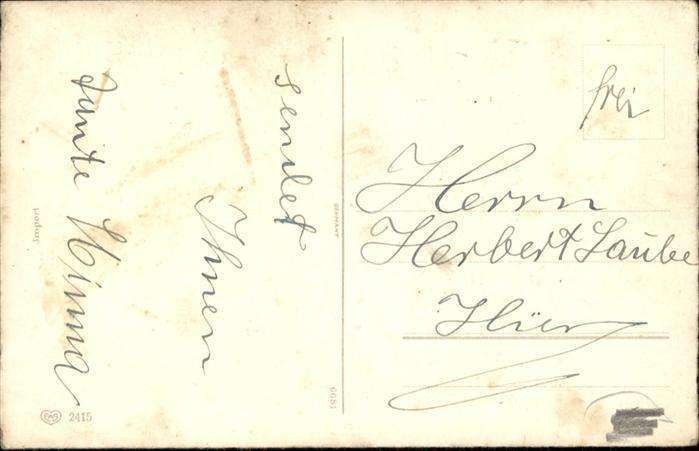 sendet
Ihnen
Tante Minna
frei
Herrn
Herbert Laube
Hier
GERMANY
Import
2415